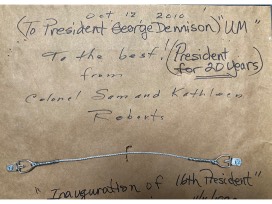 Oct 12 2010
(To President George Dennison) "UM"
To the best! (President
for 20 years)
from
Colonel Sam and Kathleen
Roberts
"Inauguration of 16th President"